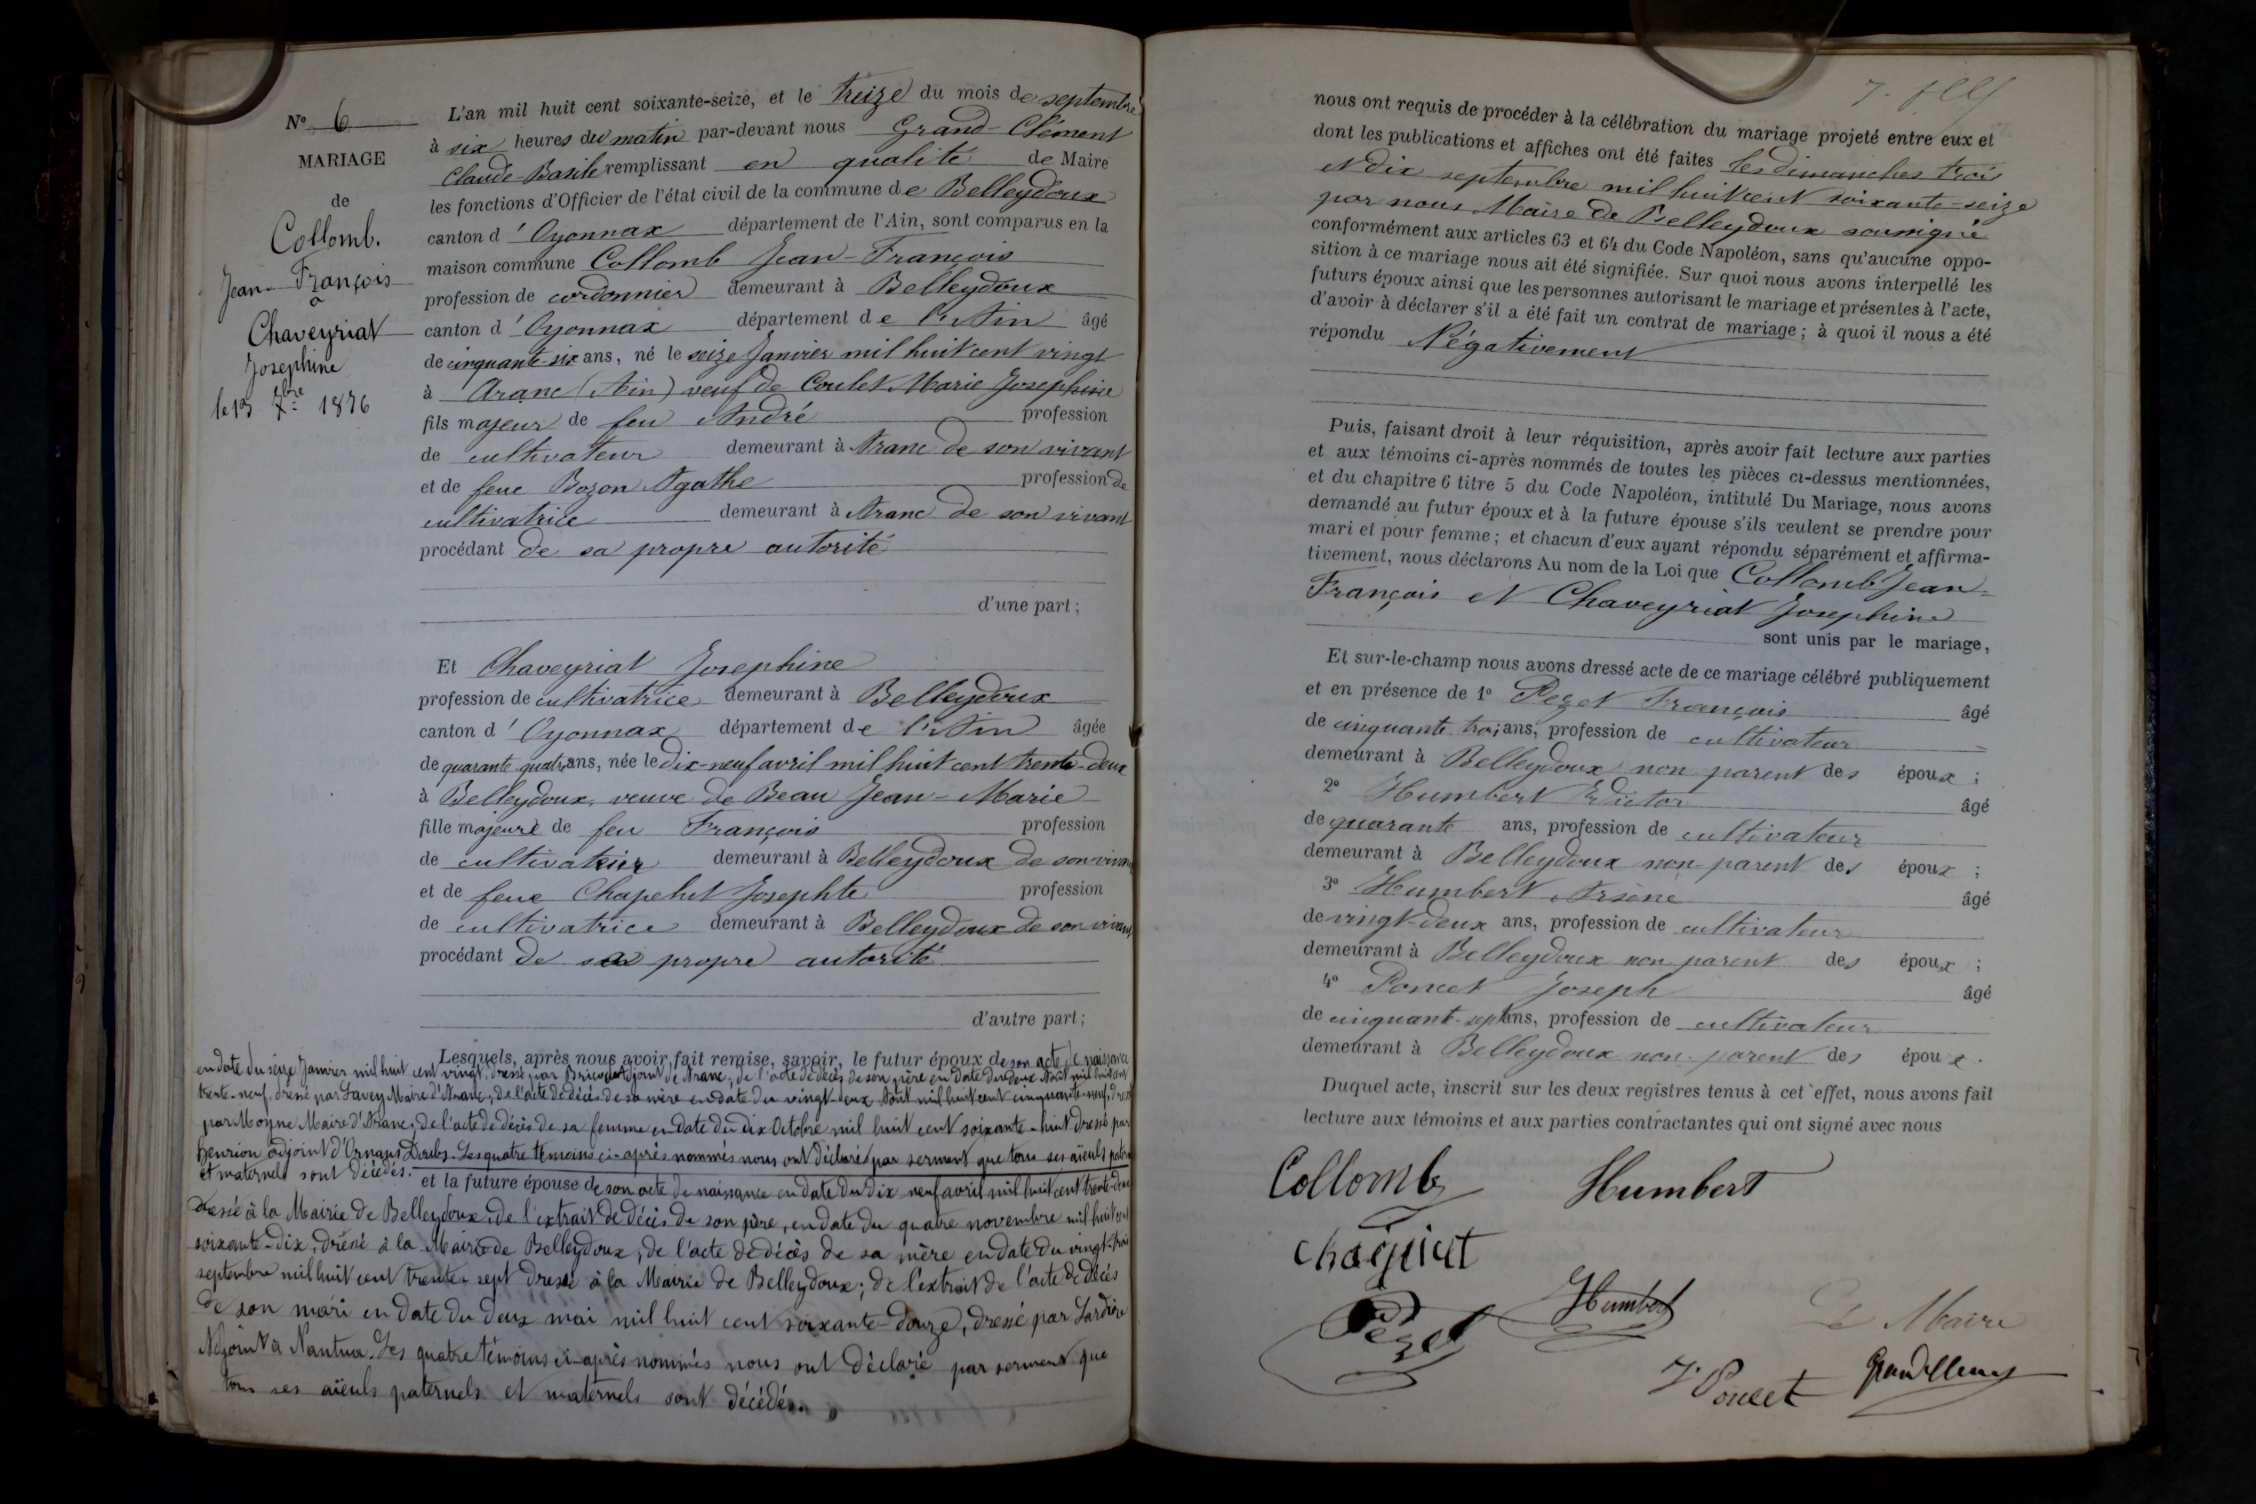 N° 6
MARIAGE
de
Collomb.
Jean-François
&
Chaveyriat
Josephine
le 13 7bre 1876
L'an mil huit cent soixante-seize, et le treize du mois de septembre
à six heures du matin par-devant nous Grand-Clément
Claude-Basile remplissant en qualité de Maire
les fonctions d'Officier de l'état civil de la commune de Belleydoux
canton d'Oyonnax département de l'Ain, sont comparus en la
maison commune Collomb Jean-François
profession de cordonnier demeurant à Belleydoux
canton d'Oyonnax département de l'Ain âgé
de cinquante six ans, né le seize Janvier mil huit cent vingt
à Aranc (Ain) veuf de Coulet Marie Josephine
fils majeur de feu André profession
de cultivateur demeurant à Aranc de son vivant
et de feue Bozon Agathe profession de
cultivatrice demeurant à Aranc de son vivant
procédant de sa propre autorité
d'une part;
Et Chaveyriat Josephine
profession de cultivatrice demeurant à Belleydoux
canton d'Oyonnax département de l'Ain âgée
de quarante quatre ans, née le dix-neuf avril mil huit cent trente-deux
à Belleydoux, veuve de Beau Jean-Marie
fille majeure de feu François profession
de cultivateur demeurant à Belleydoux de son vivant
et de feue Chapelut Josephte profession
de cultivatrice demeurant à Belleydoux de son vivant
procédant de sa propre autorité
d'autre part;
Lesquels, après nous avoir fait remise, savoir, le futur époux de son acte de naissance
en date du seize Janvier mil huit cent vingt, dressé par adjoint de Aranc, de l'acte de décès de son père en date du deux Août mil huit cent
trente-neuf, dressé par Savey Maire d'Aranc, de l'acte de décès de sa mère en date du vingt-deux Août mil huit cent cinquante-neuf, dressé
par Moyne Maire d'Aranc, de l'acte de décès de sa femme en date du dix Octobre mil huit cent soixante-huit dressé par
Henrion adjoint d'Ornans Doubs. Les quatre témoins ci-après nommés nous ont déclaré par serment que tous ses aïeuls paternels
et maternels sont décédés. et la future épouse de son acte de naissance en date du dix neuf avril mil huit cent trente-deux
dressé à la Mairie de Belleydoux, de l'extrait de décès de son père, en date du quatre novembre mil huit cent
soixante-dix, dressé à la Mairie de Belleydoux, de l'acte de décès de sa mère en date du vingt-trois
septembre mil huit cent trente-sept dressé à la Mairie de Belleydoux; de l'extrait de l'acte de décès
de son mari en date du deux mai mil huit cent soixante-douze, dressé par
Adjoint à Nantua. Les quatre témoins ci-après nommés nous ont déclaré par serment que
tous ses aïeuls paternels et maternels sont décédés.
nous ont requis de procéder à la célébration du mariage projeté entre eux et
dont les publications et affiches ont été faites les dimanches trois
et dix septembre mil huit cent soixante-seize
par nous Maire de Belleydoux soussigné
conformément aux articles 63 et 64 du Code Napoléon, sans qu'aucune oppo-
sition à ce mariage nous ait été signifiée. Sur quoi nous avons interpellé les
futurs époux ainsi que les personnes autorisant le mariage et présentes à l'acte,
d'avoir à déclarer s'il a été fait un contrat de mariage; à quoi il nous a été
répondu Négativement
Puis, faisant droit à leur réquisition, après avoir fait lecture aux parties
et aux témoins ci-après nommés de toutes les pièces ci-dessus mentionnées,
et du chapitre 6 titre 5 du Code Napoléon, intitulé Du Mariage, nous avons
demandé au futur époux et à la future épouse s'ils veulent se prendre pour
mari et pour femme; et chacun d'eux ayant répondu séparément et affirma-
tivement, nous déclarons Au nom de la Loi que Collomb Jean-
François et Chaveyriat Josephine
sont unis par le mariage,
Et sur-le-champ nous avons dressé acte de ce mariage célébré publiquement
et en présence de 1° Pezet François âgé
de cinquante trois ans, profession de cultivateur
demeurant à Belleydoux non parent des époux;
2° Humbert Victor âgé
de quarante ans, profession de cultivateur
demeurant à Belleydoux non parent des époux;
3° Humbert Arsène âgé
de vingt-deux ans, profession de cultivateur
demeurant à Belleydoux non parent des époux;
4° Poncet Joseph âgé
de cinquant-sept ans, profession de cultivateur
demeurant à Belleydoux non parent des époux.
Duquel acte, inscrit sur les deux registres tenus à cet effet, nous avons fait
lecture aux témoins et aux parties contractantes qui ont signé avec nous
Collomb Humbert
Pezet Humbert Le Maire
J. Poncet Grandclément